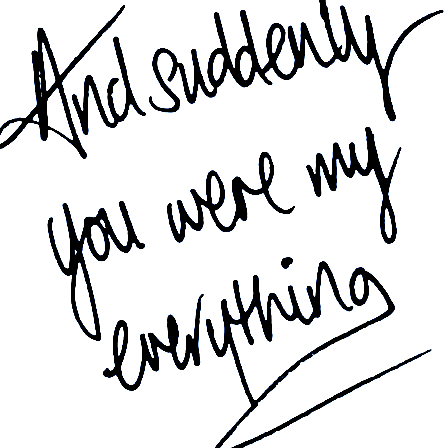 And suddenly
you were my
everything